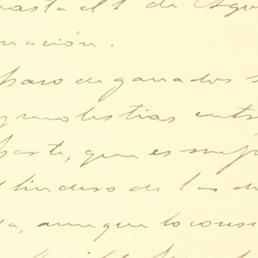 hasta el 1 de Ago
nación.
paso de ganados s
y molestias entr
parte, que es mejo
l lindero de las de
a, aunque lo cons